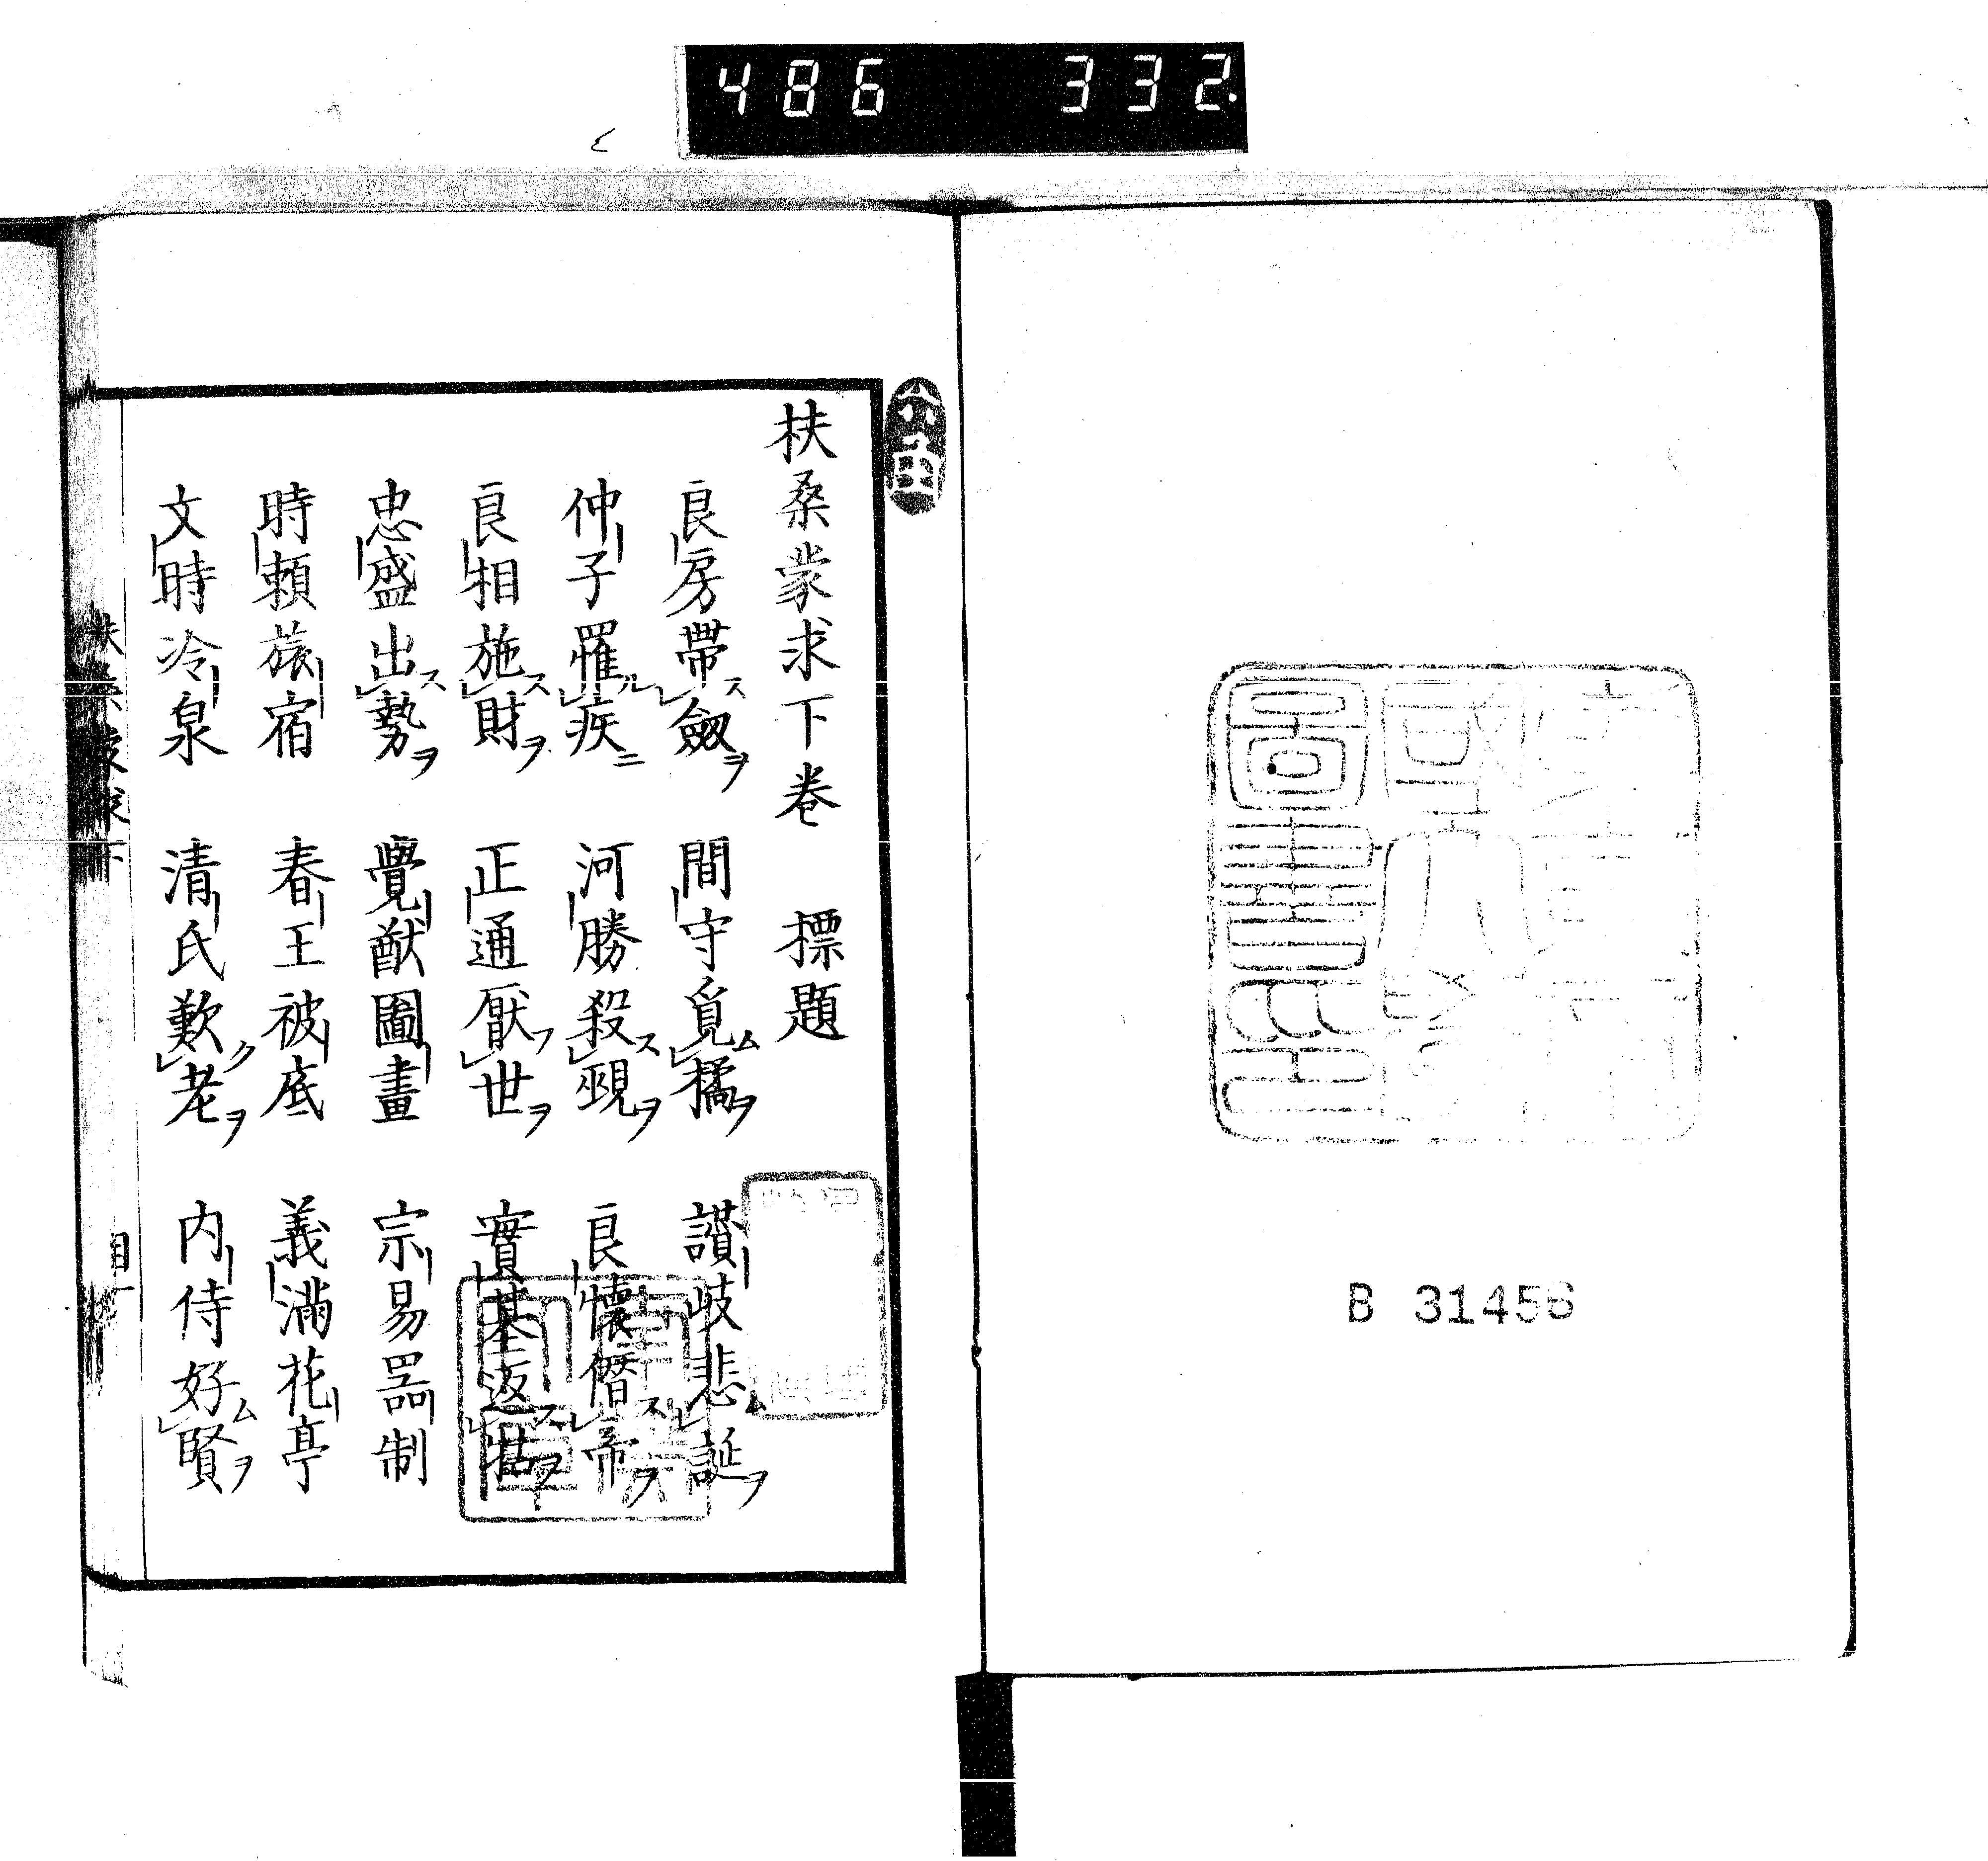 486 332.
B 31456
扶桑蒙求下卷 標題
良房帶ス劔ヲ 間守覓ム橘ヲ 讃岐悲ム誕ヲ
仲子罹ル疾ニ 河勝殺ス覡ヲ 良懷僭ス帝ヲ
良相施ス財ヲ 正通厭フ世ヲ 實基返ス牯ヲ
忠盛出ス勢ヲ 覺猷圖畫 宗易噐制
時頼旅宿 春王被底 義滿花亭
文時冷泉 清氏歎ク老ヲ 内侍好ム賢ヲ